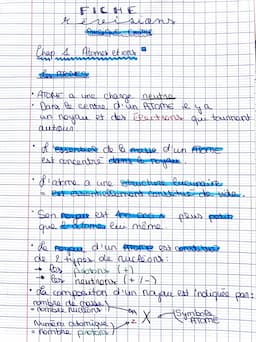 FICHE
révisions
Chap 1 Atomes et ions
• ATOME a une charge neutre
• Dans le centre d'un ATOME il y a
un noyau et des Électrons qui tournent
autour
• L'essentiel de la masse d'un atome
est concentré dans le noyau.
• L'atome a une structure lacunaire
= est essentiellement constitué de vide.
• Son noyau est plus petit
que lui même
• Le noyau d'un atome est constitué
de 2 types de nucléons:
→ Les protons (+)
→ Les neutrons (+/-)
• La composition d'un noyau est indiquée par:
nombre de masse
= nombre nucléons
A
X
Symbole
ATOME
Numéro atomique
= nombre protons
Z